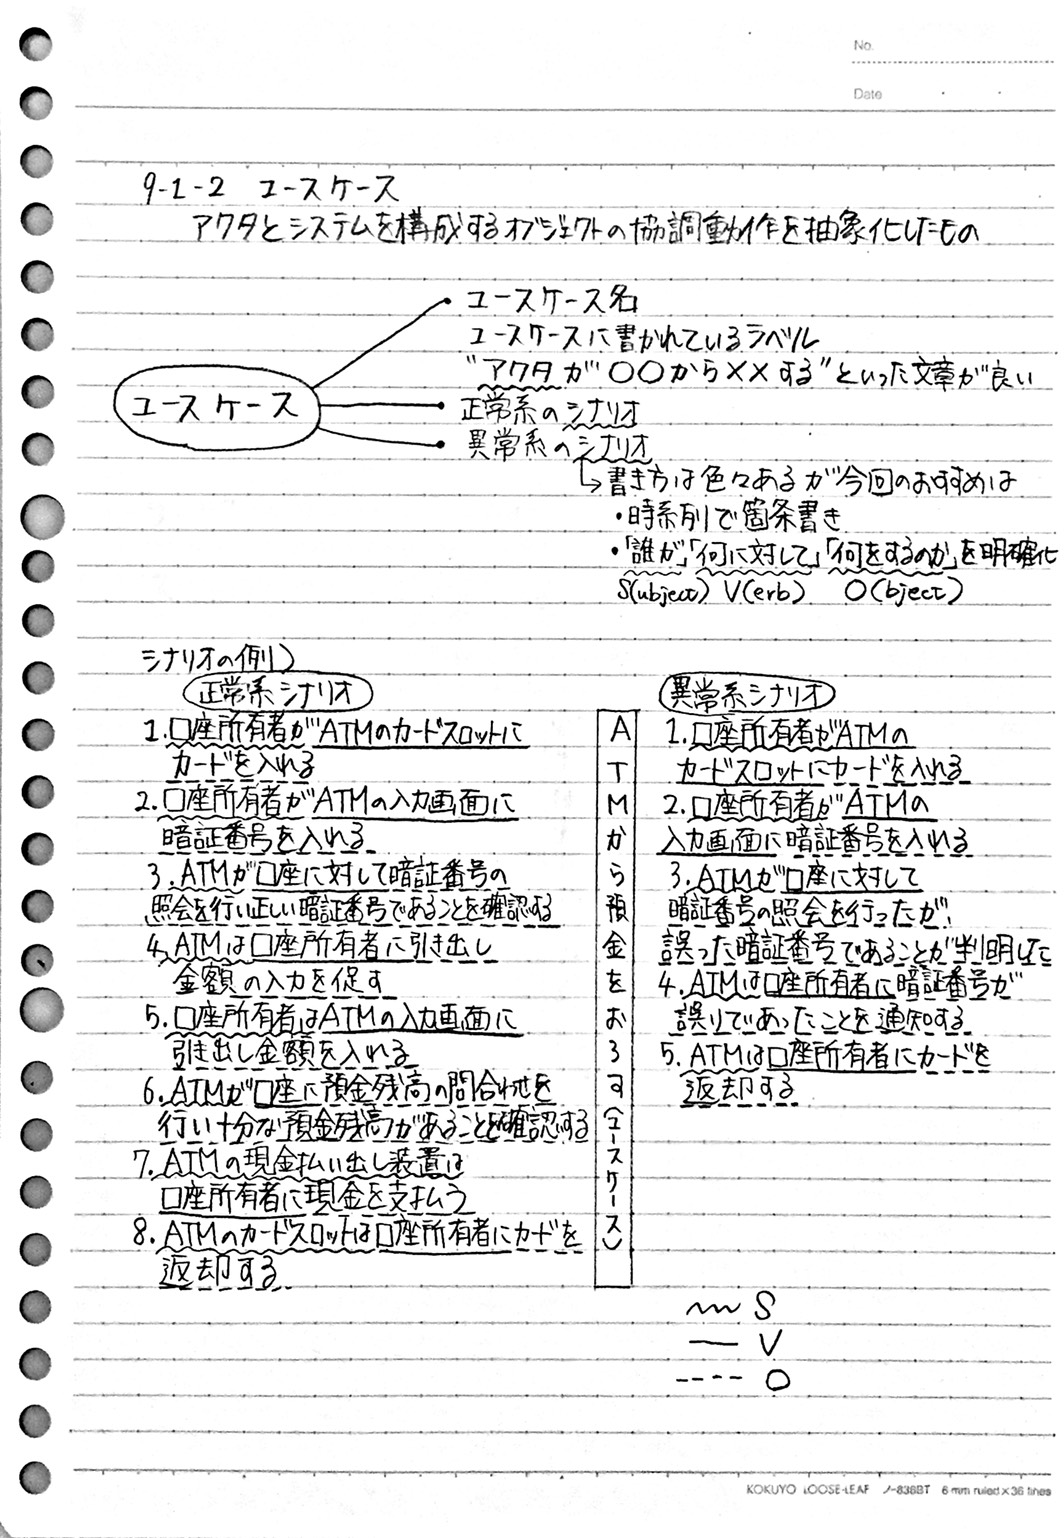 No.
Date
9-1-2 ユースケース
アクタとシステムを構成するオブジェクトの協調動作を抽象化したもの
ユースケース
・ユースケース名
ユースケースに書かれているラベル
"アクタが〇〇から××する"といった文章が良い
・正常系のシナリオ
・異常系のシナリオ
↳書き方は色々あるが今回のおすすめは
・時系列で箇条書き
・「誰が」「何に対して」「何をするのか」を明確化
S(ubject) V(erb) O(bject)
シナリオの例)
正常系シナリオ
1.口座所有者がATMのカードスロットに
カードを入れる
2.口座所有者がATMの入力画面に
暗証番号を入れる
3.ATMが口座に対して暗証番号の
照会を行い正しい暗証番号であることを確認する
4.ATMは口座所有者に引き出し
金額の入力を促す
5.口座所有者はATMの入力画面に
引き出し金額を入れる
6.ATMが口座に預金残高の問合わせを
行い十分な預金残高があることを確認する
7.ATMの現金払い出し装置は
口座所有者に現金を支払う
8.ATMのカードスロットは口座所有者にカードを
返却する
ATMから預金をおろす(ユースケース)
異常系シナリオ
1.口座所有者がATMの
カードスロットにカードを入れる
2.口座所有者がATMの
入力画面に暗証番号を入れる
3.ATMが口座に対して
暗証番号の照会を行ったが、
誤った暗証番号であることが判明した
4.ATMは口座所有者に暗証番号が
誤りであったことを通知する
5.ATMは口座所有者にカードを
返却する
S
V
O
KOKUYO LOOSE-LEAF ノ-836BT 6 mm ruled×36 lines